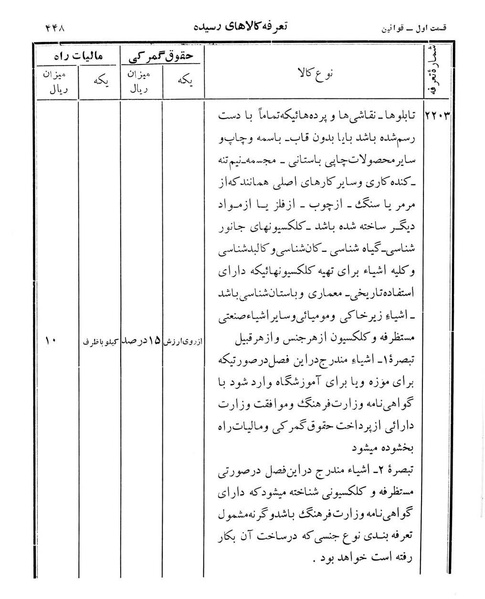 قسمت اول ــ قوانین
تعرفه کالاهای رسیده
۴۴۸
شمارهٔ تعرفه
نوع کالا
حقوق گمرکی
مالیات راه
یکه
میزان ریال
یکه
میزان ریال
۲۲۰۳
تابلوها ــ نقاشی‌ها و پرده‌هائیکه تماماً با دست
رسم شده باشد با یا بدون قاب ــ باسمه و چاپ و
سایر محصولات چاپی باستانی ــ مجسمه ــ نیم تنه
ــ کنده کاری و سایر کارهای اصلی همانند که از
مرمر یا سنگ ــ از چوب ــ از فلز یا از مواد
دیگر ساخته شده باشد ــ کلکسیونهای جانور
شناسی ــ گیاه شناسی ــ کان‌شناسی و کالبدشناسی
و کلیه اشیاء برای تهیه کلکسیونهائیکه دارای
استفاده تاریخی ــ معماری و باستان‌شناسی باشد
ــ اشیاء زیر خاکی و مومیائی و سایر اشیاء صنعتی
مستظرفه و کلکسیون از هر جنس و از هر قبیل
از روی ارزش
۱۵ درصد
کیلو با ظرف
۱۰
تبصرهٔ ۱ ــ اشیاء مندرج در این فصل در صورتیکه
برای موزه و یا برای آموزشگاه وارد شود با
گواهی‌نامه وزارت فرهنگ و موافقت وزارت
دارائی از پرداخت حقوق گمرکی و مالیات راه
بخشوده میشود
تبصرهٔ ۲ ــ اشیاء مندرج در این فصل در صورتی
مستظرفه و کلکسیونی شناخته میشود که دارای
گواهی‌نامه وزارت فرهنگ باشد و گرنه مشمول
تعرفه بندی نوع جنسی که در ساخت آن بکار
رفته است خواهد بود .